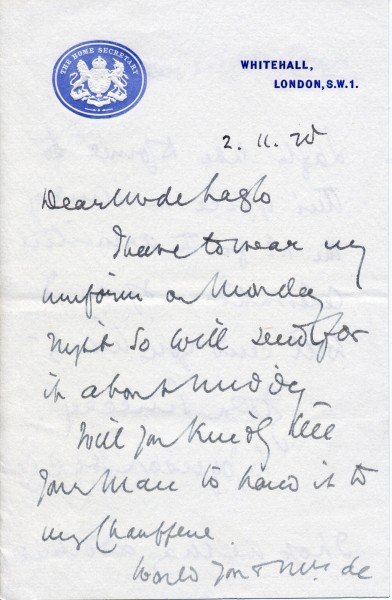 THE HOME SECRETARY
WHITEHALL,
LONDON, S.W.1.
2. 11. 25
Dear Mr de Laszlo
I have to wear my
uniform on Monday
night so will send for
it about midday
Will you kindly tell
your man to hand it to
my Chauffeur.
Would you & Mrs de